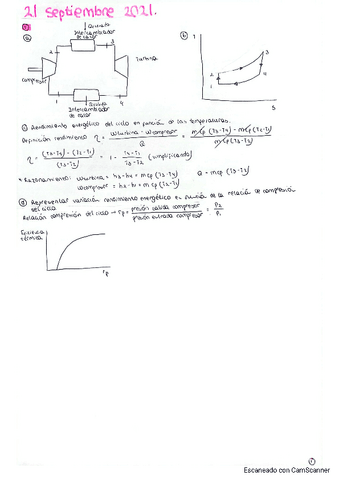 21 septiembre 2021.
a
b
Qcedido
Intercambiador de calor
2
3
turbina
compresor
1
4
Intercambiador de calor
T
3
2
4
1
S
c) Rendimiento energético del ciclo en función de las temperaturas.
Definición rendimiento η = Wturbina - Wcompresor / Q = m cp (T3-T4) - m cp (T2-T1) / m cp (T3-T2)
η = (T3-T4) - (T2-T1) / (T3-T2) = 1 - T4-T1 / T3-T2 (simplificando)
* Razonamiento: Wturbina = h3-h4 = mcp (T3-T4) Q = mcp (T3-T2)
Wcompresor = h2-h1 = mcp (T2-T1)
d) Representar variación rendimiento energético en función de la relación de compresión del ciclo
Relación compresión del ciclo → rp = presión salida compresor / presión entrada compresor = P2 / P1
Eficiencia térmica
rp
Escaneado con CamScanner